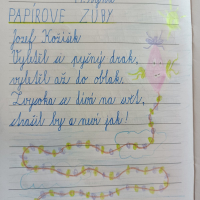 PAPÍROVE ZUBY
Jozef Kožíšek
Vyletěl se pyšný drak,
vyletěl až do oblak.
Zvysoka se dívá na svět,
strašil by a neví jak!